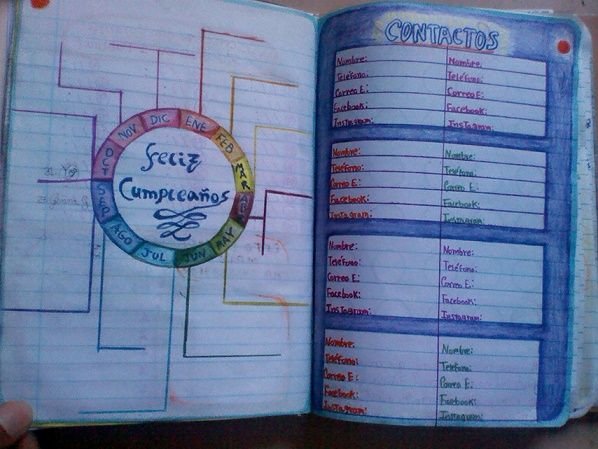 ENE
FEB
MAR
ABR
MAY
JUN
JUL
AGO
SEP
OCT
NOV
DIC
Feliz
Cumpleaños
CONTACTOS
Nombre: Nombre:
Teléfono: Teléfono:
Correo E: Correo E:
Facebook: Facebook:
Instagram: Instagram:
Nombre: Nombre:
Teléfono: Teléfono:
Correo E: Correo E:
Facebook: Facebook:
Instagram: Instagram:
Nombre: Nombre:
Teléfono: Teléfono:
Correo E: Correo E:
Facebook: Facebook:
Instagram: Instagram:
Nombre: Nombre:
Teléfono: Teléfono:
Correo E: Correo E:
Facebook: Facebook:
Instagram: Instagram: